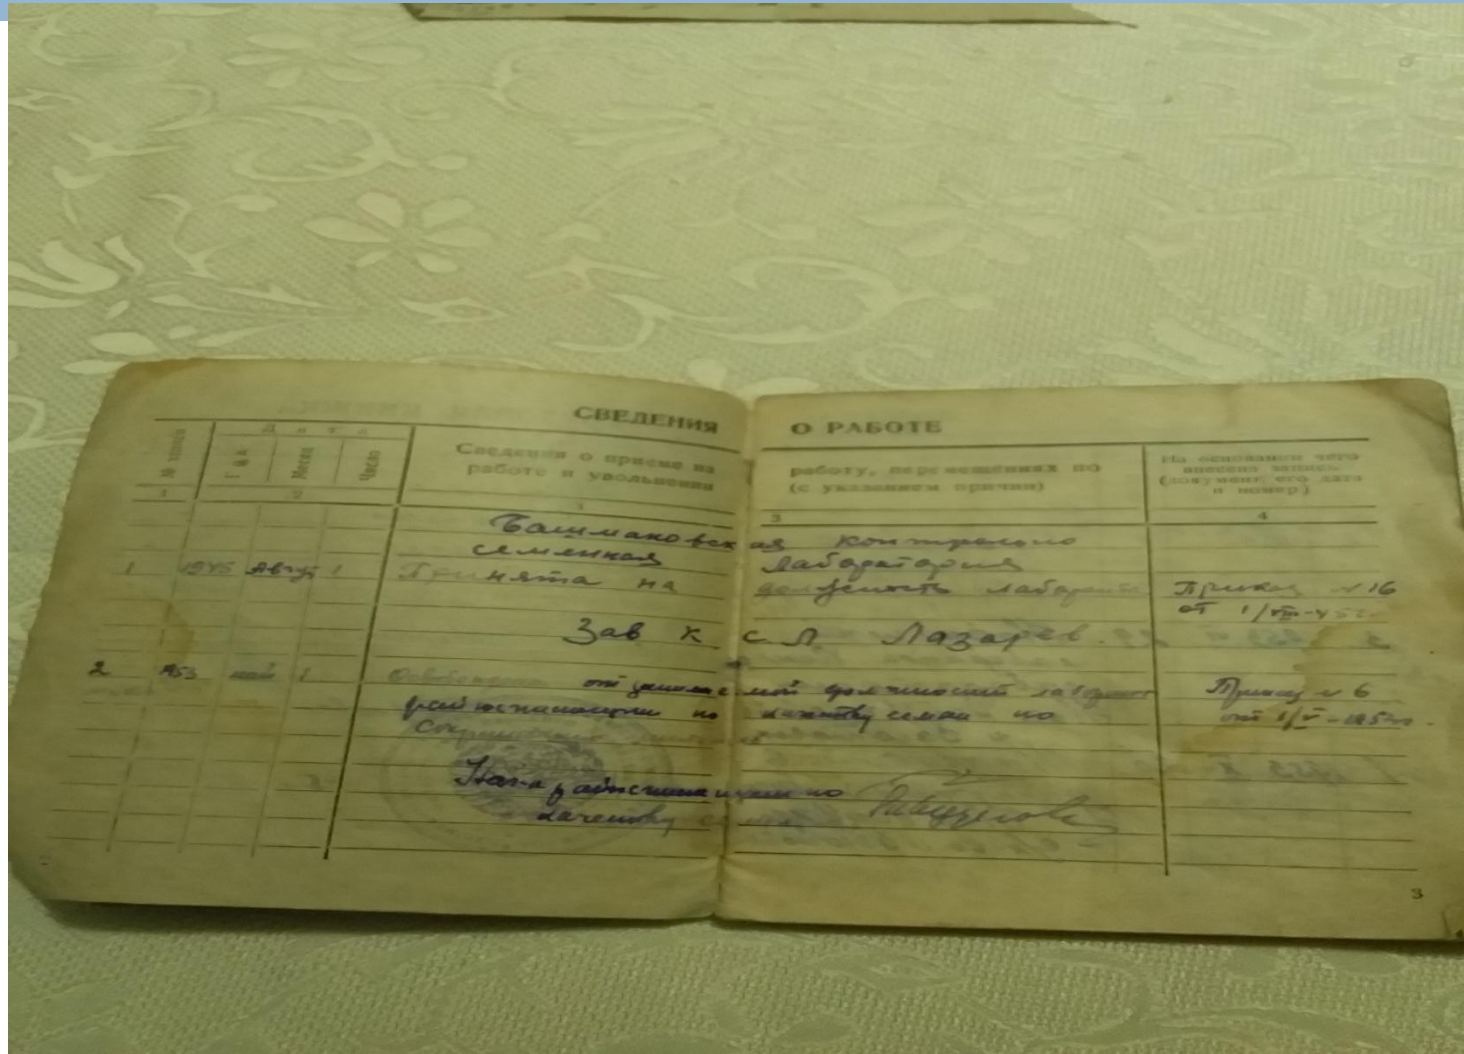 СВЕДЕНИЯ О РАБОТЕ
№ записи
Дата
Год Месяц Число
Сведения о приеме на работу, перемещениях по
работе и увольнении (с указанием причин)
На основании чего
внесена запись
(документ, его дата
и номер)
1 2 3 3 4
Башмаковская контрольно
семенная лаборатория
1 1945 Август 1 Принята на должность лаборанта Приказ №16
от 1/VIII-45г.
Зав К С Л Лазарев.
2 1953 май 1 Освобождена от занимаемой должности лаборант Приказ №6
райгосинспекции по качеству семян по от 1/V-1953г.
Сокращению
Нач-к райгосинспекции по
качеству семян
3